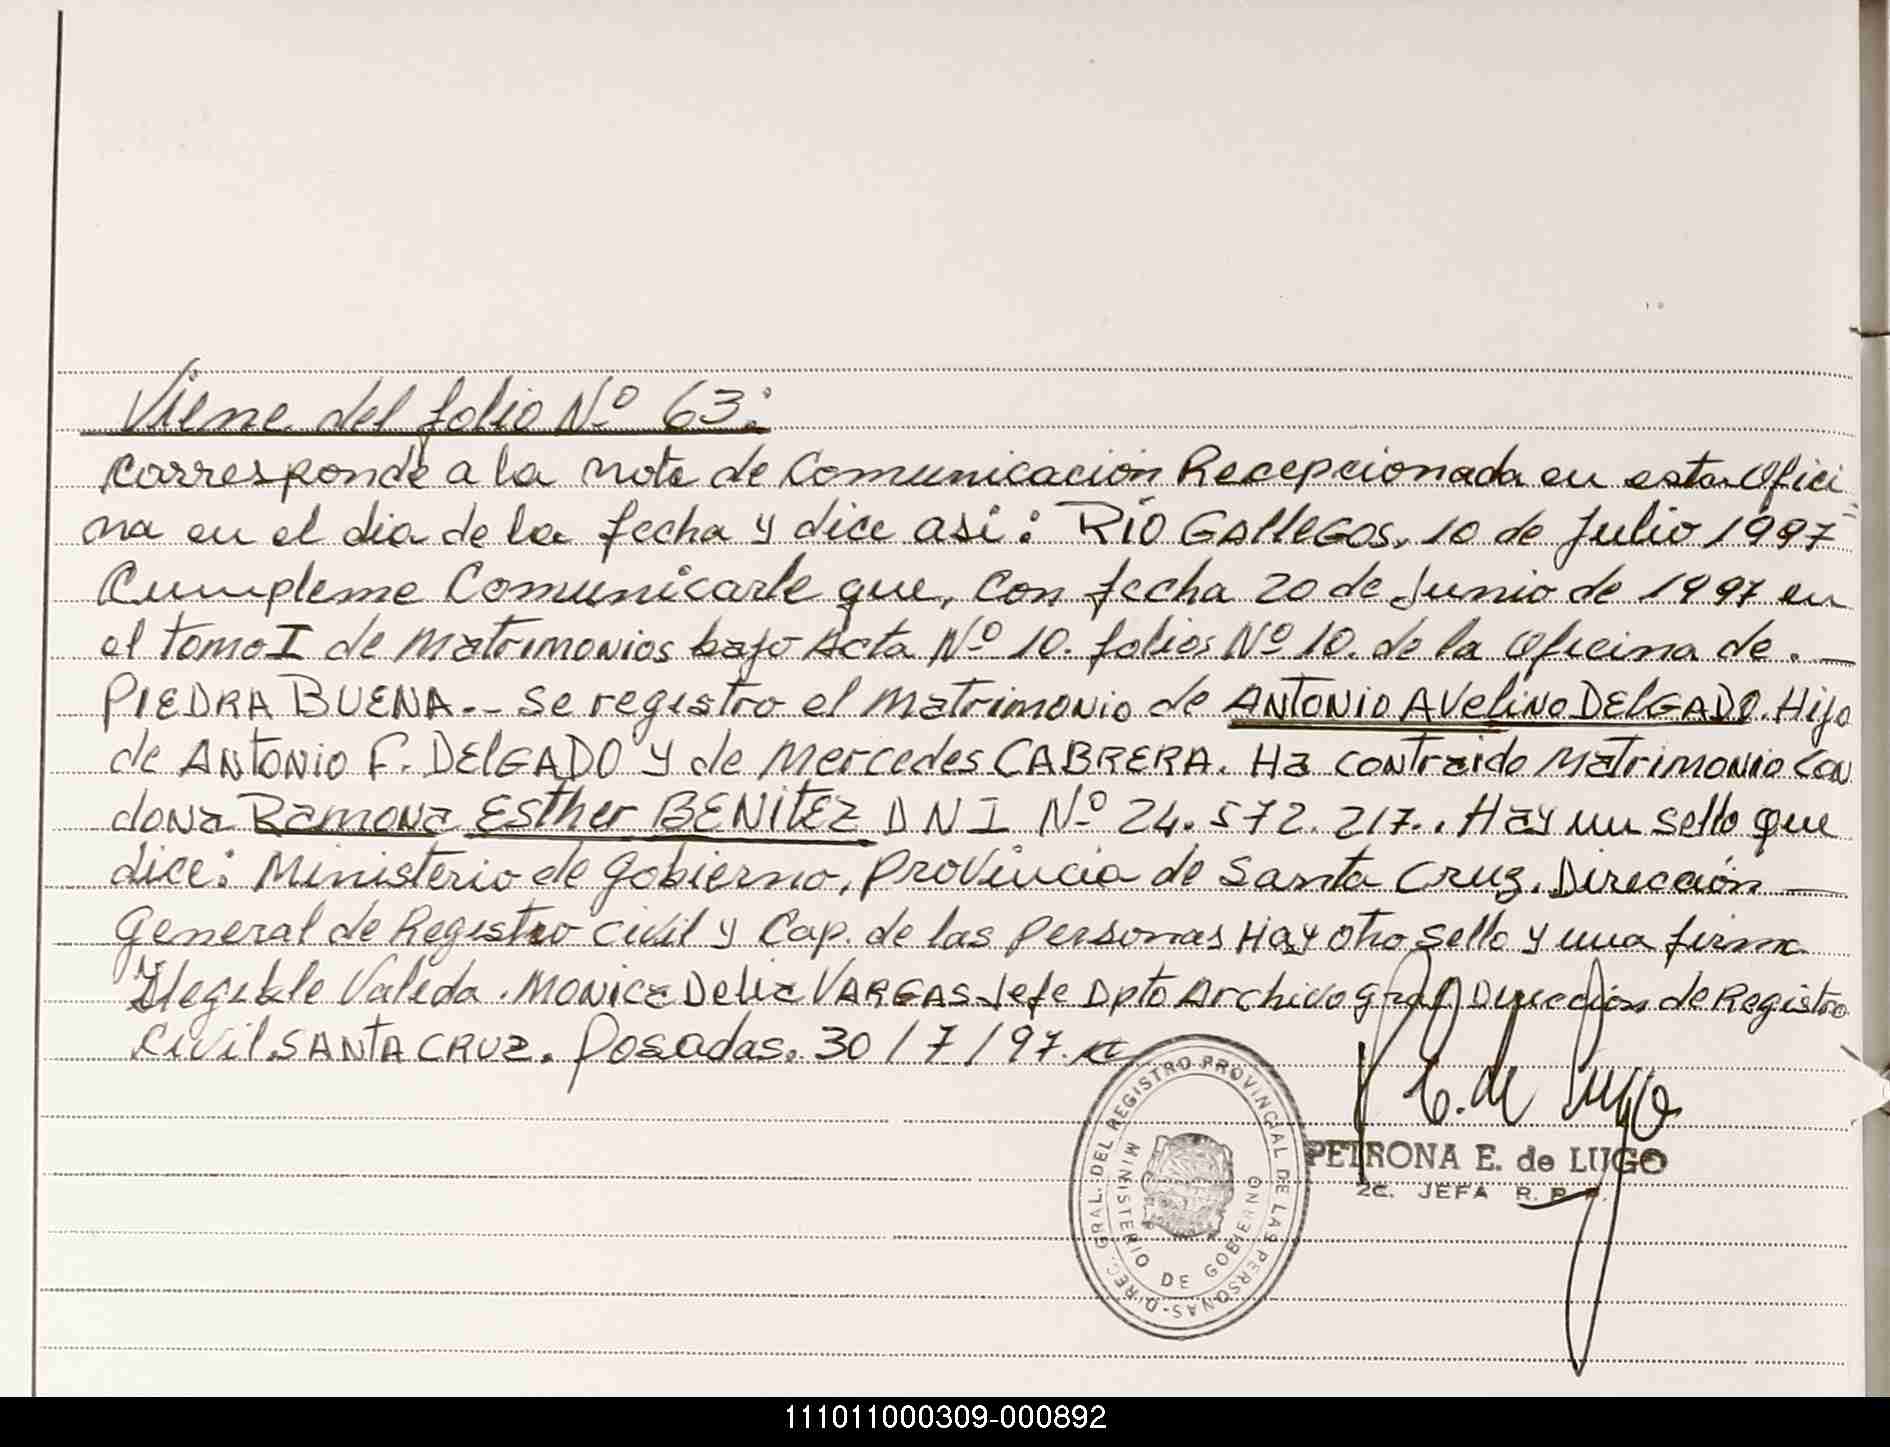 Viene del folio Nº 63:
Corresponde a la nota de Comunicación Recepcionada en esta Ofici=
na en el dia de la fecha y dice asi: RÍO GALLEGOS, 10 de Julio 1997
Cumpleme Comunicarle que, Con fecha 20 de Junio de 1997 en
el tomo I de Matrimonios bajo Acta Nº 10. folios Nº 10. de la Oficina de.—
PIEDRA BUENA.- Se registro el Matrimonio de ANTONIO AVELINO DELGADO. Hijo
de ANTONIO F. DELGADO y de Mercedes CABRERA. Ha contraido Matrimonio con
dona Ramona Esther BENITEZ D N I Nº 24.572.217.. Hay un sello que
dice: Ministerio de Gobierno, Provincia de Santa Cruz. Dirección —
General de Registro civil y Cap. de las Personas Hay otro sello y una firma
Ilegible Valeda. Monica Delia VARGAS Jefe Dpto Archivo Gral. Dirección de Registro
Civil SANTA CRUZ. Posadas. 30/7/97.
P. E. de Lugo
PETRONA E. de LUGO
2a. JEFA R. P. P.
DIREC. GRAL. DEL REGISTRO PROVINCIAL DE LAS PERSONAS
MINISTERIO DE GOBIERNO
111011000309-000892